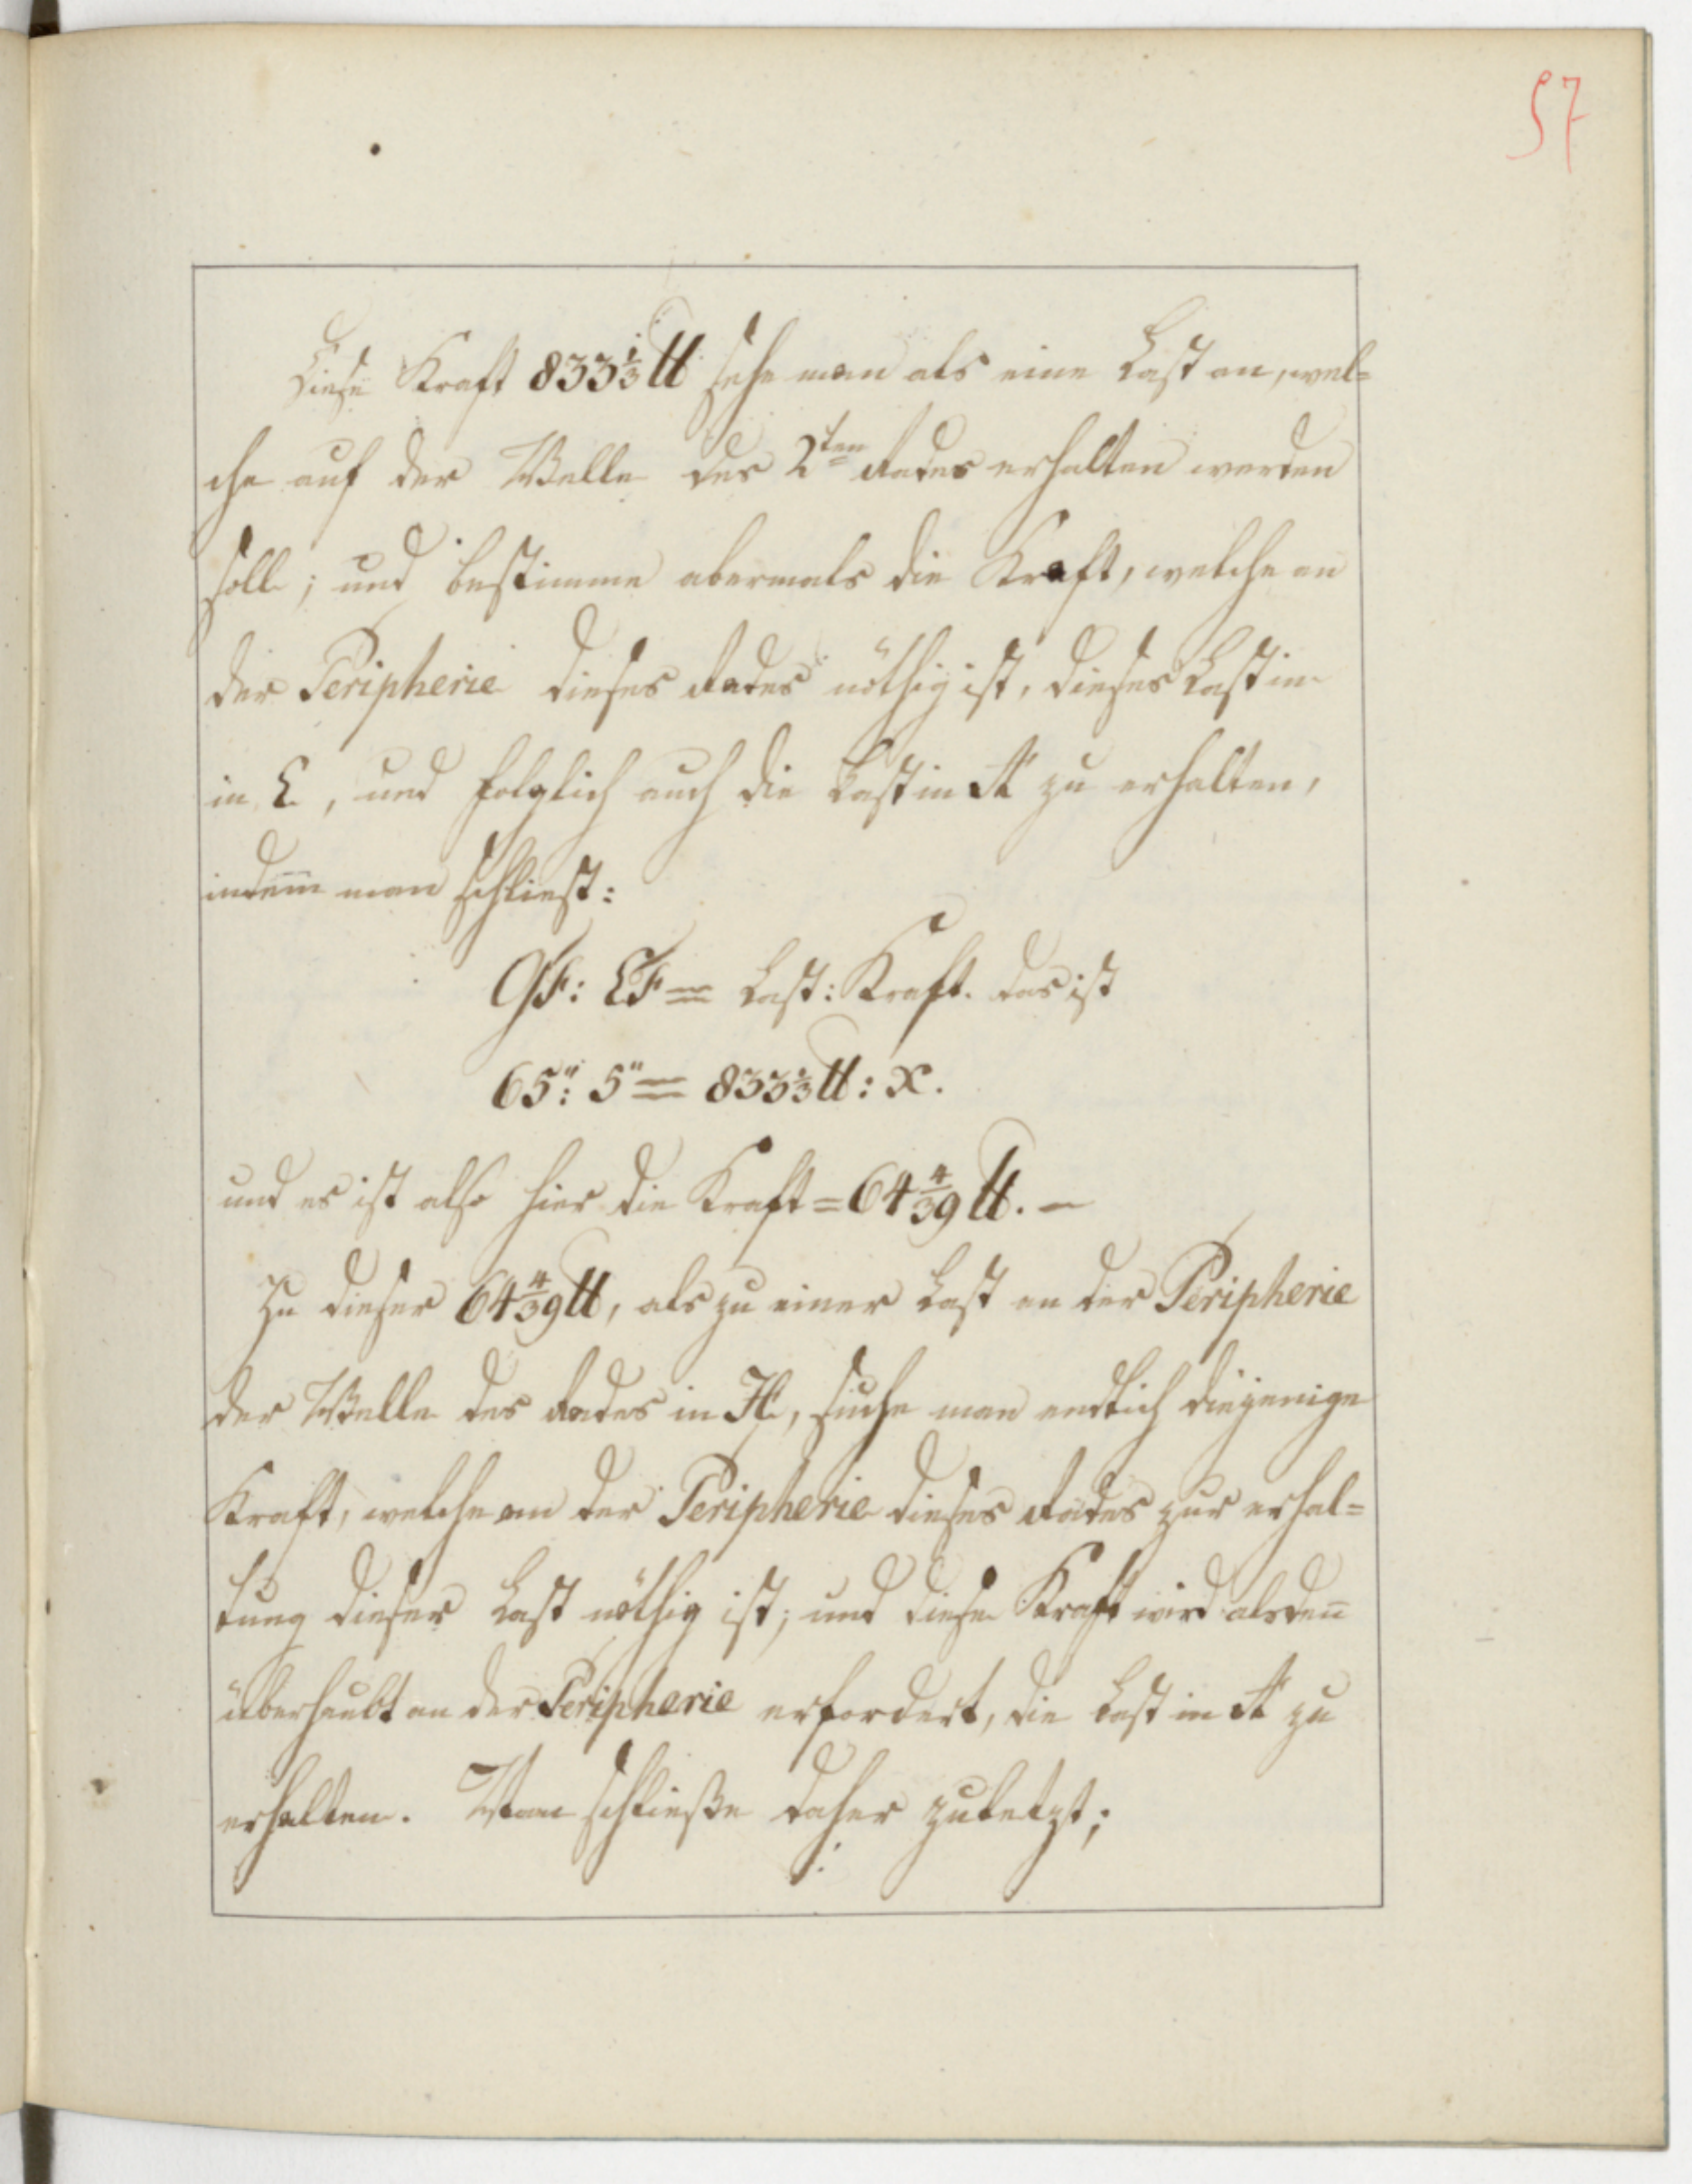 57
Diese Kraft 833⅓ ℔ sehe man als eine Last an, wel=
che auf der Welle des 2ten Rades erhalten werden
soll; und bestimme abermals die Kraft, welche an
der Peripherie dieses Rades nöthig ist, dieses Last im
in E, und folglich auch die Last in A zu erhalten,
indem̅ man schliest:
GF: EF = Last: Kraft. das ist
65": 5" = 833⅓ ℔: x.
und es ist also hier die Kraft = 64 4/39 ℔. —
Zu dieser 64 4/39 ℔, als zu einer Last an der Peripherie
der Welle des Rades in H, suche man endlich diejenige
Kraft, welche an der Peripherie dieses Rades zur erhal=
tung dieser Last nöthig ist; und diese Kraft wird alsden̅
überhaubt an der Peripherie erfordert, die Last in A zu
erhalten. Man schließe daher zuletzt;